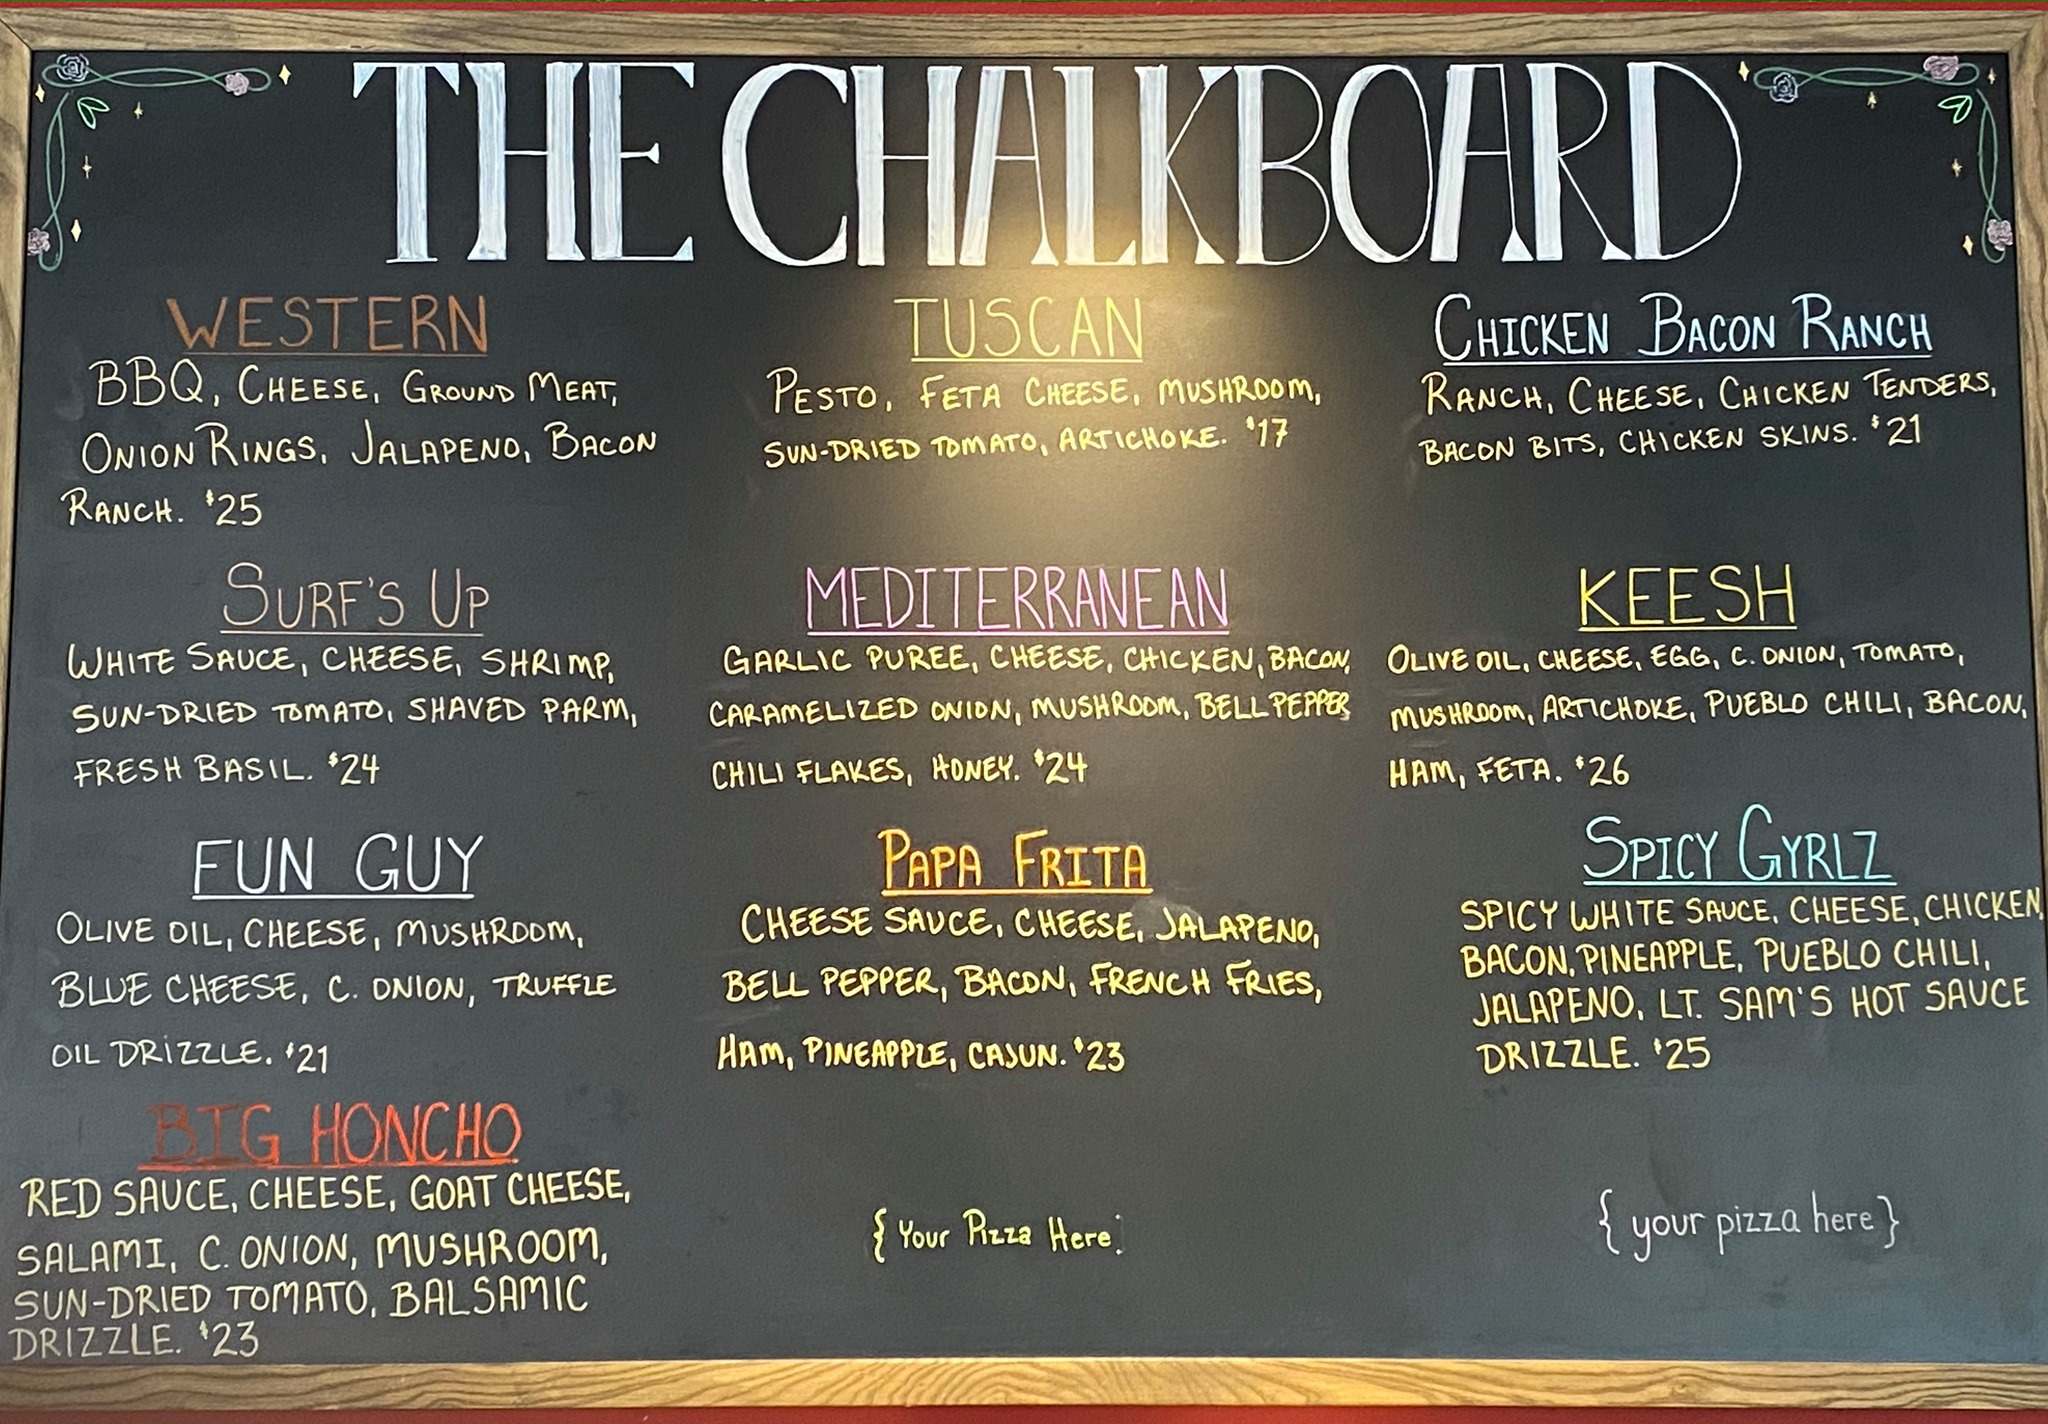 THE CHALKBOARD
WESTERN
BBQ, CHEESE, GROUND MEAT,
ONION RINGS, JALAPENO, BACON
RANCH. $25
TUSCAN
PESTO, FETA CHEESE, MUSHROOM,
SUN-DRIED TOMATO, ARTICHOKE. $17
CHICKEN BACON RANCH
RANCH, CHEESE, CHICKEN TENDERS,
BACON BITS, CHICKEN SKINS. $21
SURF'S UP
WHITE SAUCE, CHEESE, SHRIMP,
SUN-DRIED TOMATO, SHAVED PARM,
FRESH BASIL. $24
MEDITERRANEAN
GARLIC PUREE, CHEESE, CHICKEN, BACON,
CARAMELIZED ONION, MUSHROOM, BELL PEPPER
CHILI FLAKES, HONEY. $24
KEESH
OLIVE OIL, CHEESE, EGG, C. ONION, TOMATO,
MUSHROOM, ARTICHOKE, PUEBLO CHILI, BACON,
HAM, FETA. $26
FUN GUY
OLIVE OIL, CHEESE, MUSHROOM,
BLUE CHEESE, C. ONION, TRUFFLE
OIL DRIZZLE. $21
PAPA FRITA
CHEESE SAUCE, CHEESE, JALAPENO,
BELL PEPPER, BACON, FRENCH FRIES,
HAM, PINEAPPLE, CAJUN. $23
SPICY GYRLZ
SPICY WHITE SAUCE, CHEESE, CHICKEN,
BACON, PINEAPPLE, PUEBLO CHILI,
JALAPENO, LT. SAM'S HOT SAUCE
DRIZZLE. $25
BIG HONCHO
RED SAUCE, CHEESE, GOAT CHEESE,
SALAMI, C. ONION, MUSHROOM,
SUN-DRIED TOMATO, BALSAMIC
DRIZZLE. $23
{ Your Pizza Here:
{ your pizza here }